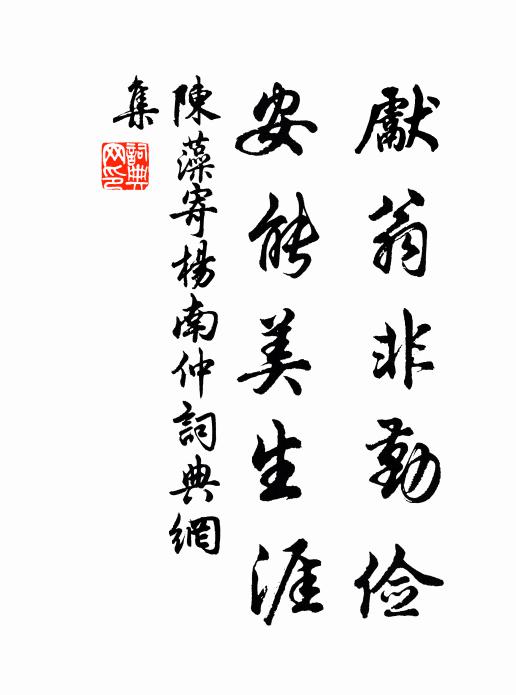 獻翁非勤儉
安能美生涯
陳藻寄楊南仲詞典網
集
詞典
网印